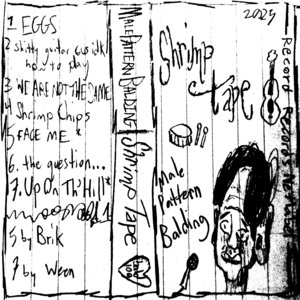 1 EGGS
2 shitty guitar cus idk
how to play
3 WE ARE NOT THE SAME
4 Shrimp Chips
5 FACE ME *
6. the question...
7. UP ON TH' HILL*
5 by Brik
7 by Ween
MALE PATTERN BALDING
Shrimp TAPE
2024
Shrimp
Tape
Male
Pattern
Balding
Record Records